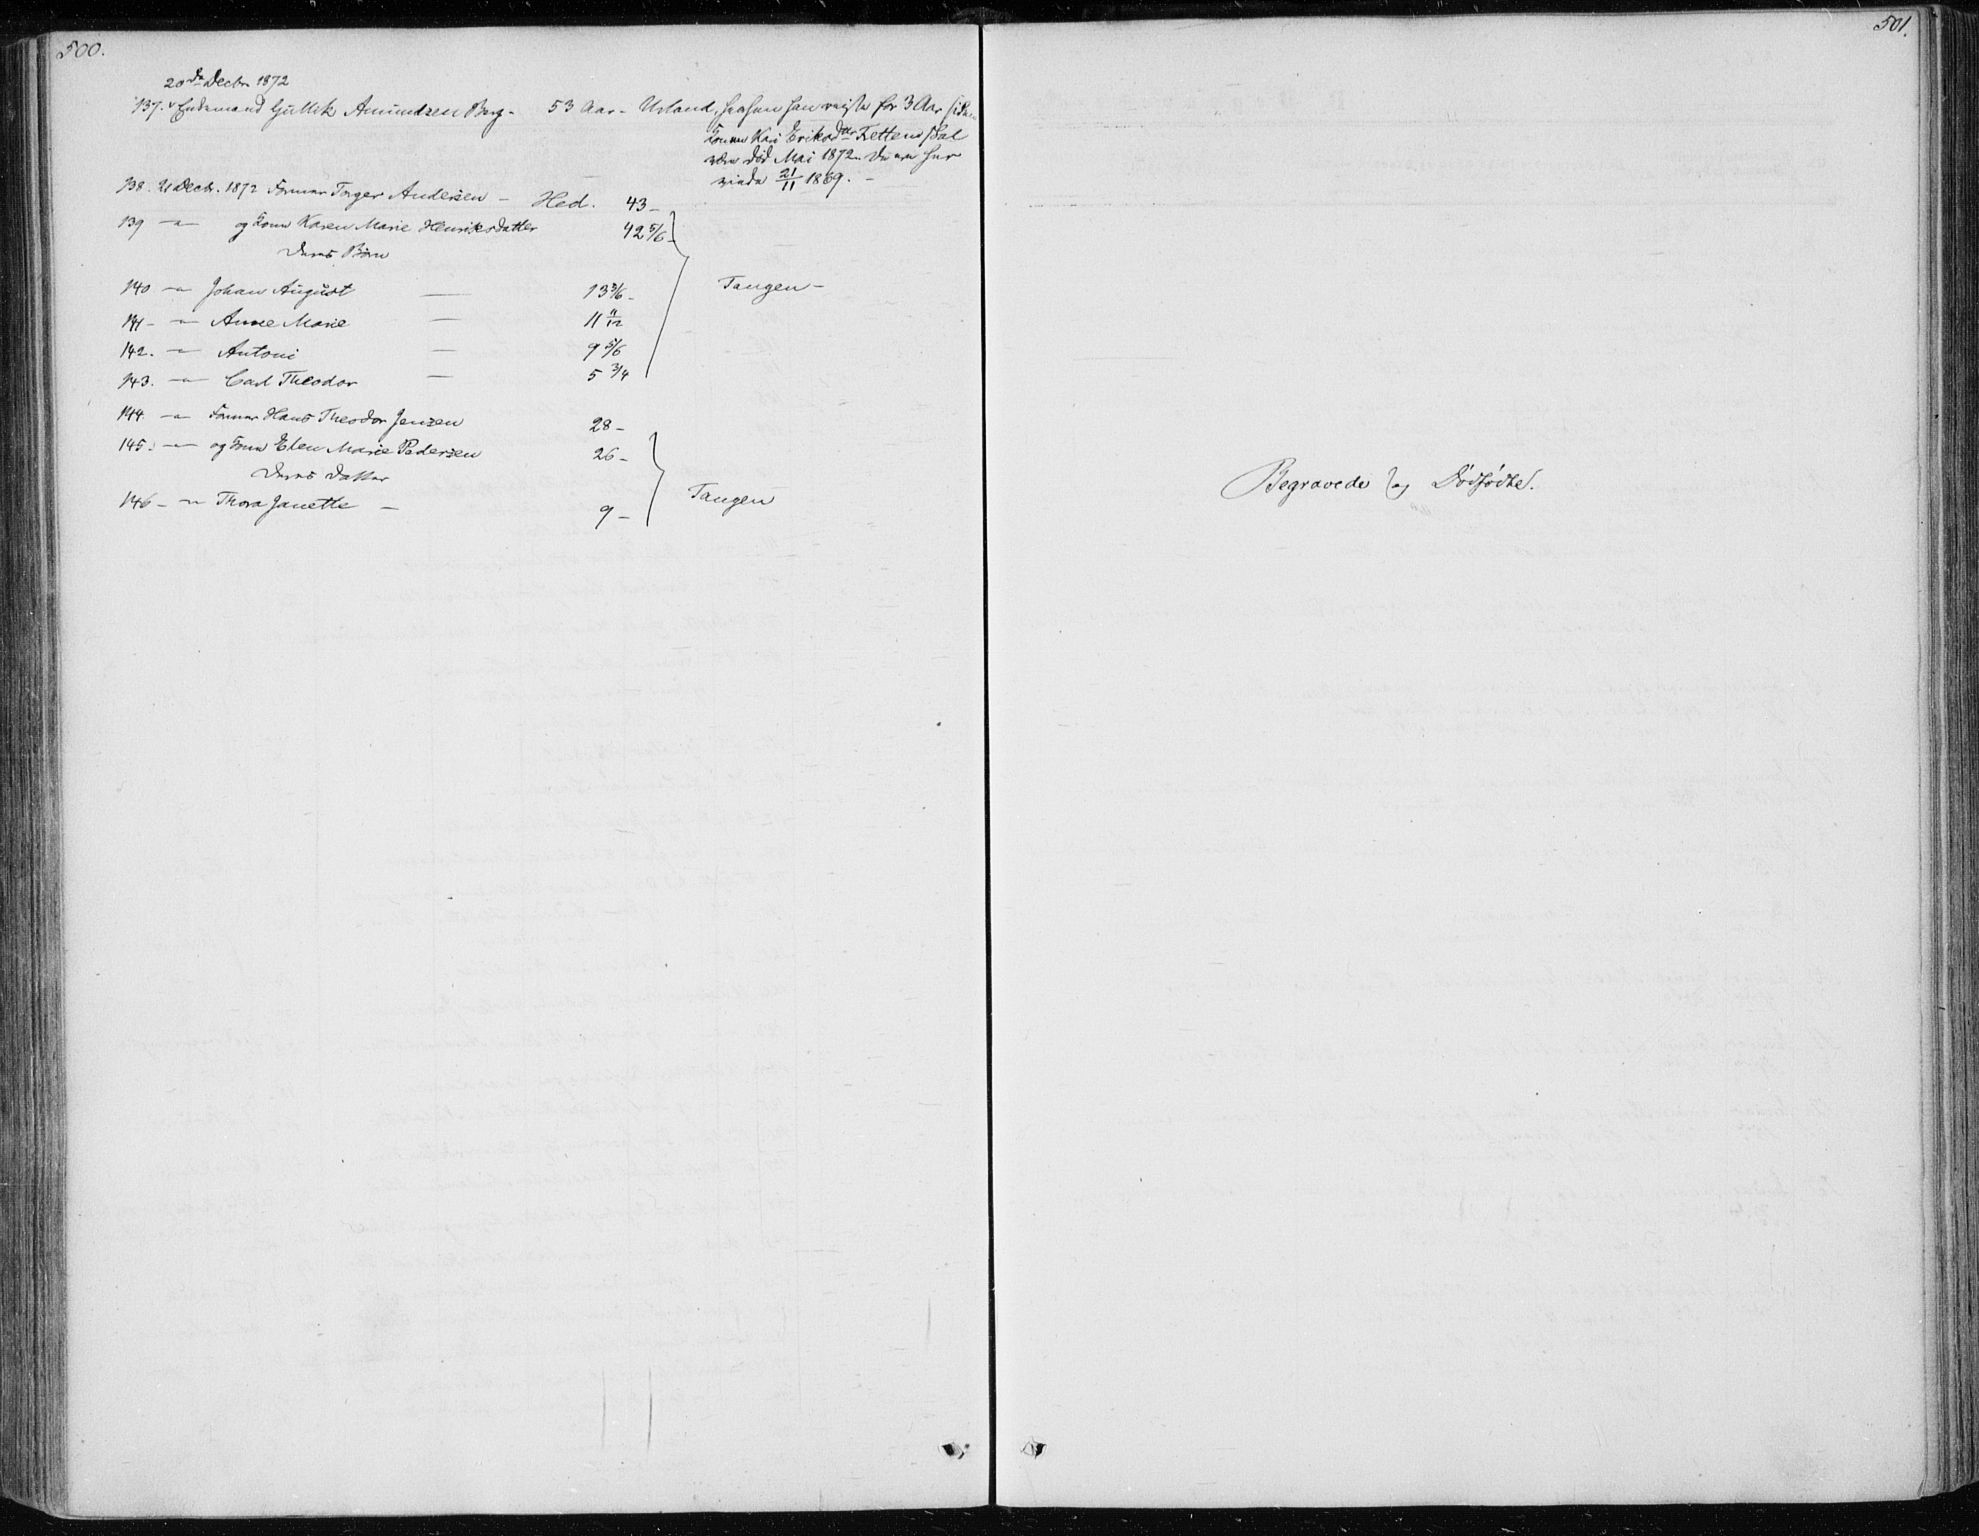 500.
20de Decbr 1872
137. Enkemand Gullek Amundsen Berg - 53 Aar - Urland, hvorhen han reiste for 3 Aar siden
Konen Kari Eriksdtr Tretten skal
være død Mai 1872. De ere her
viede 21/11 1869. -
138. 21 Decb. 1872 Former Torger Andersen - Hed. 43 -
139 -"- og Kone Karen Marie Henriksdatter 42 5/6 -
Deres Børn
140 -"- Johan August — 13 5/6 - Tangen -
141 - -"- Anne Marie — 11 11/12
142. -"- Antoni — 9 5/6
143. -"- Carl Theodor — 5 3/4
144. -"- Former Hans Theodor Jensen 28 -
145. -"- og Kone Elen Marie Pedersen 26 -
Deres Datter
146 - -"- Thora Janette - 9 - Tangen
501.
Begravede og Dødfødte.